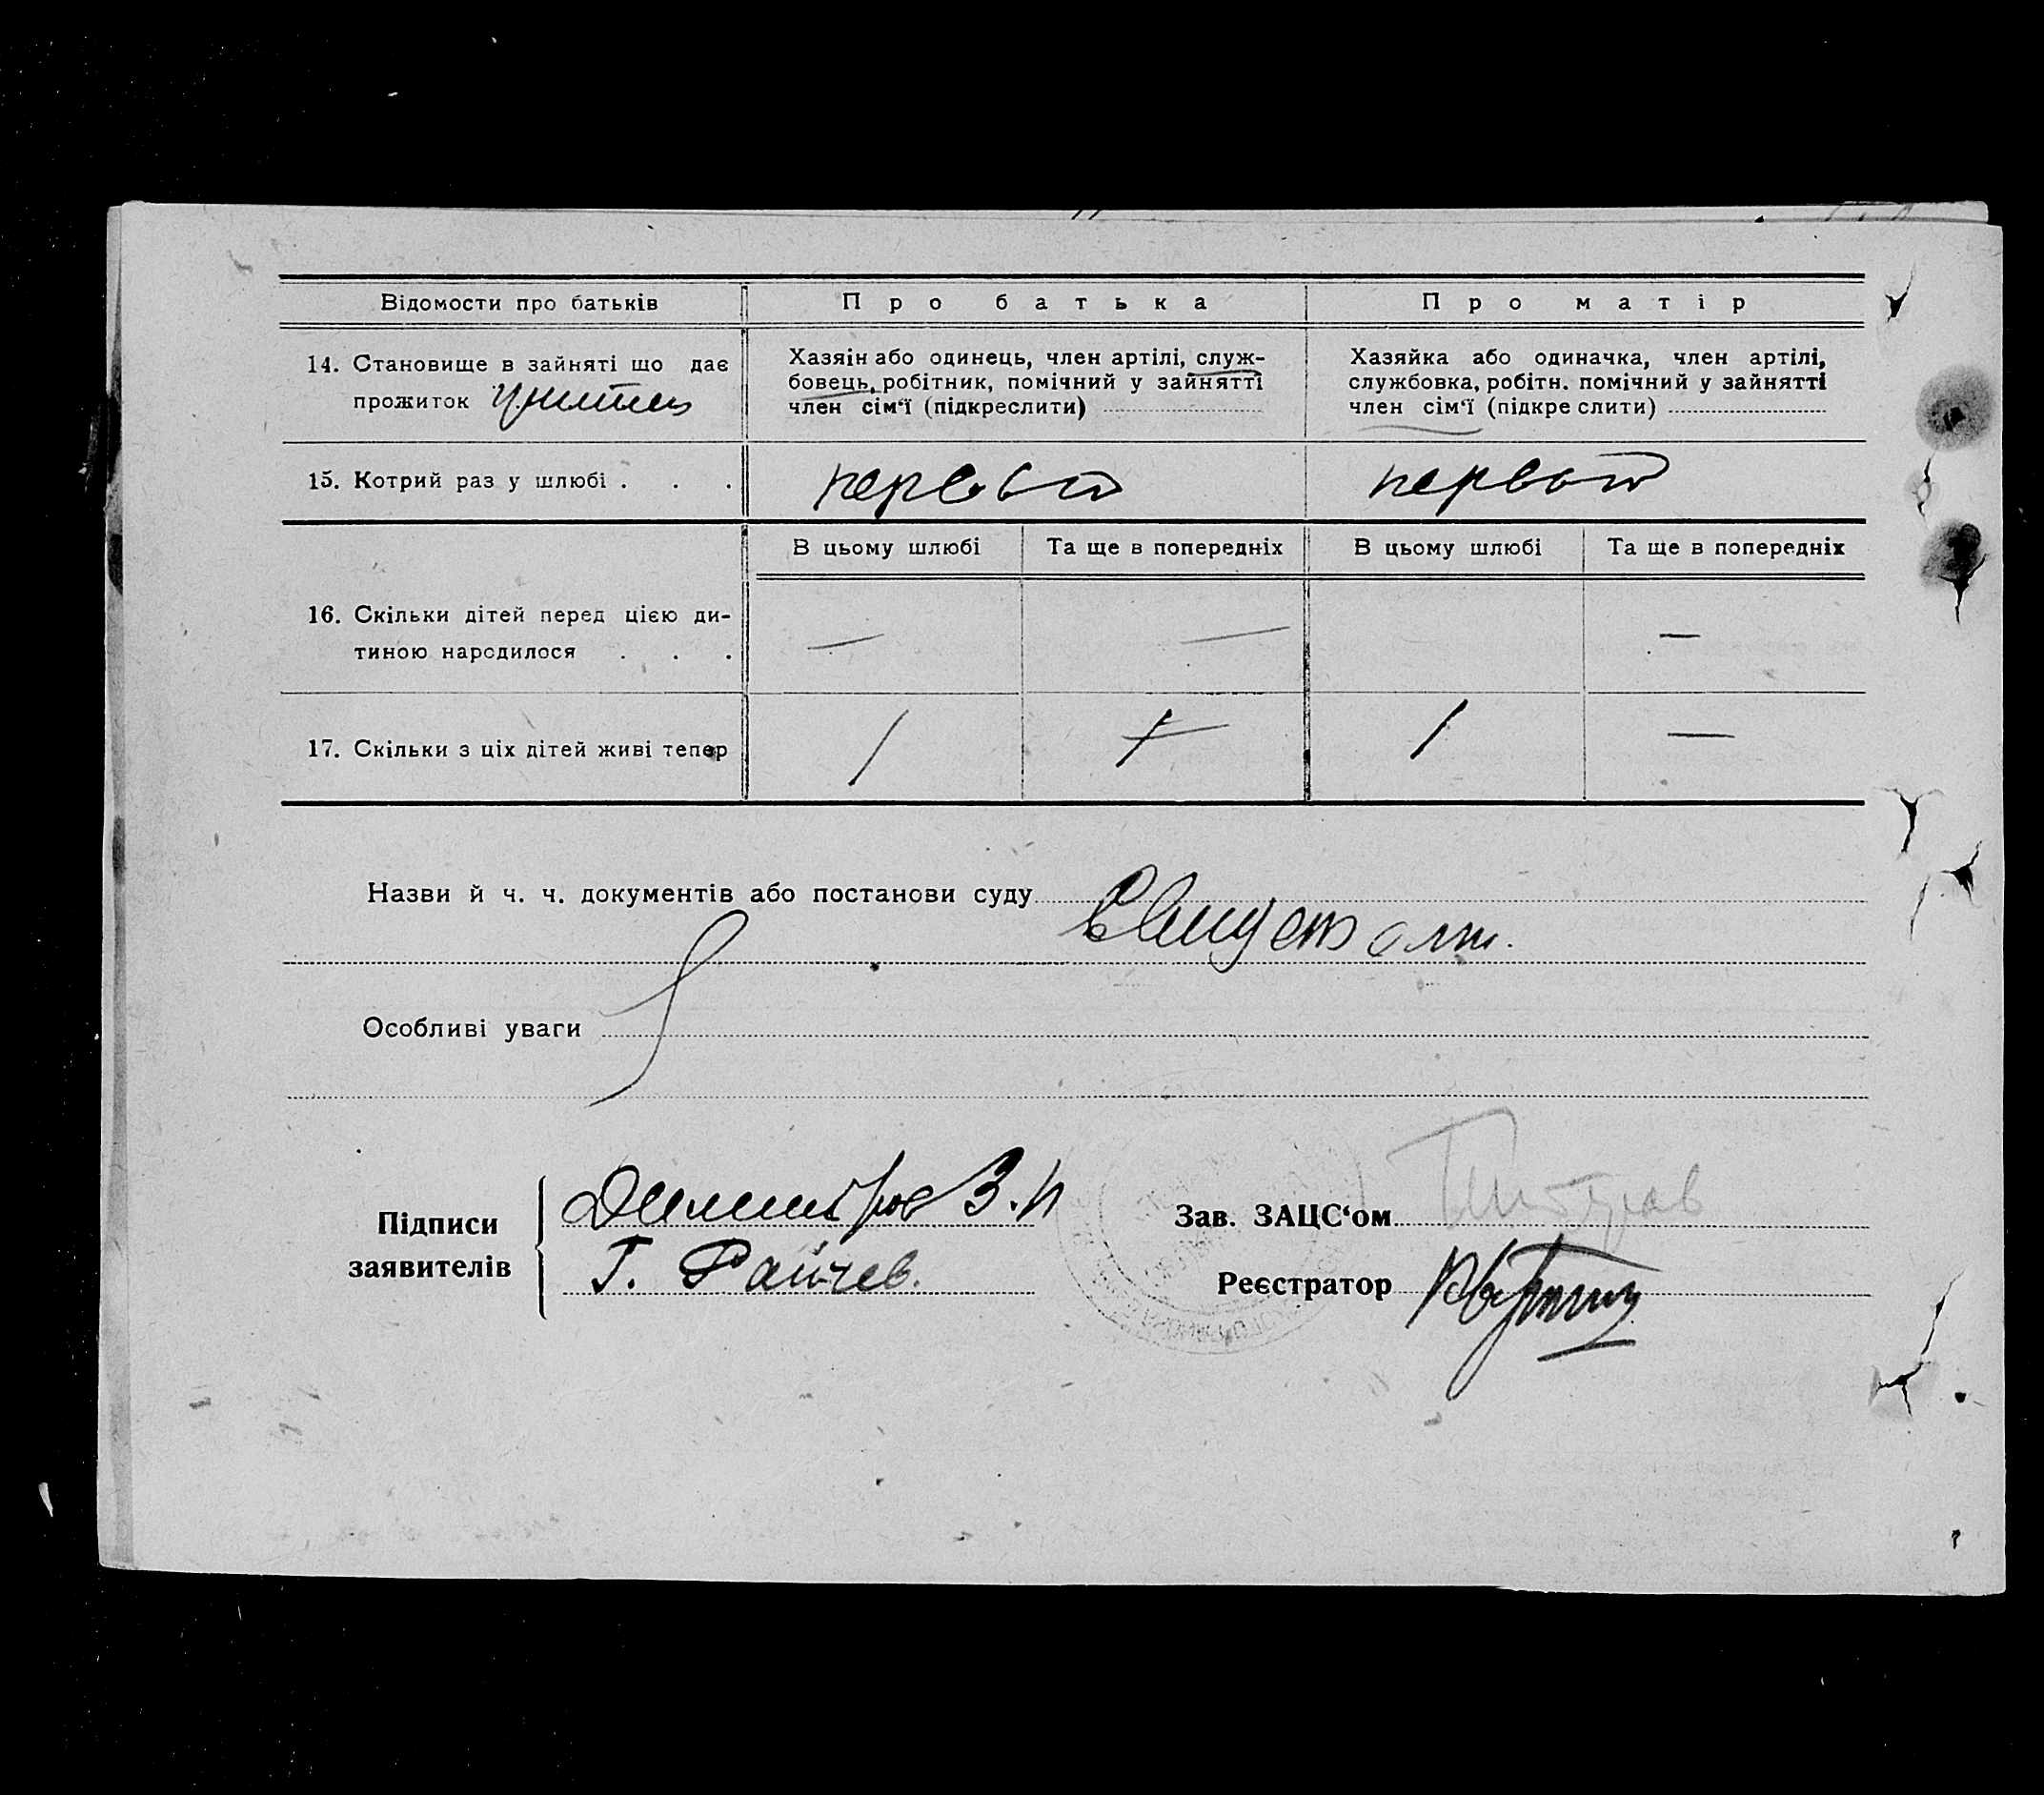 Відомости про батьків П р о б а т ь к а П р о м а т і р
14. Становище в зайняті що дає
прожиток учитель
Хазяін або одинець, член артілі, служ-
бовець, робітник, помічний у зайнятті
член сім‘ї (підкреслити)
Хазяйка або одиначка, член артілі,
службовка, робітн. помічний у зайнятті
член сім‘ї (підкре слити)
15. Котрий раз у шлюбі . . . первый первый
В цьому шлюбі Та ще в попередніх В цьому шлюбі Та ще в попередніх
16. Скільки дітей перед цією ди-
тиною народилося . . . — — —
17. Скільки з ціх дітей живі тепер 1 1 —
Назви й ч. ч. документів або постанови суду
Особливі уваги
Підписи
заявителів
Димитров З. И
Г. Райчев.
Зав. ЗАЦС‘ом
Реєстратор